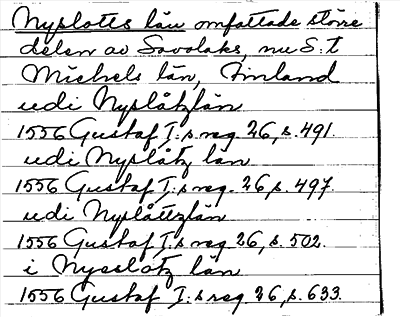 Nyslotts län omfattade större
delen av Savolaks, nu S:t
Michels län, Finland
udi Nyslåtzlän
1556 Gustaf I:s reg. 26, s. 491.
udi Nyslåtz län
1556 Gustaf I:s reg. 26, s. 497.
udi Nyslåttzlän
1556 Gustaf I:s reg. 26, s. 502.
i Nysslotz län
1556 Gustaf I:s reg. 26, s. 633.